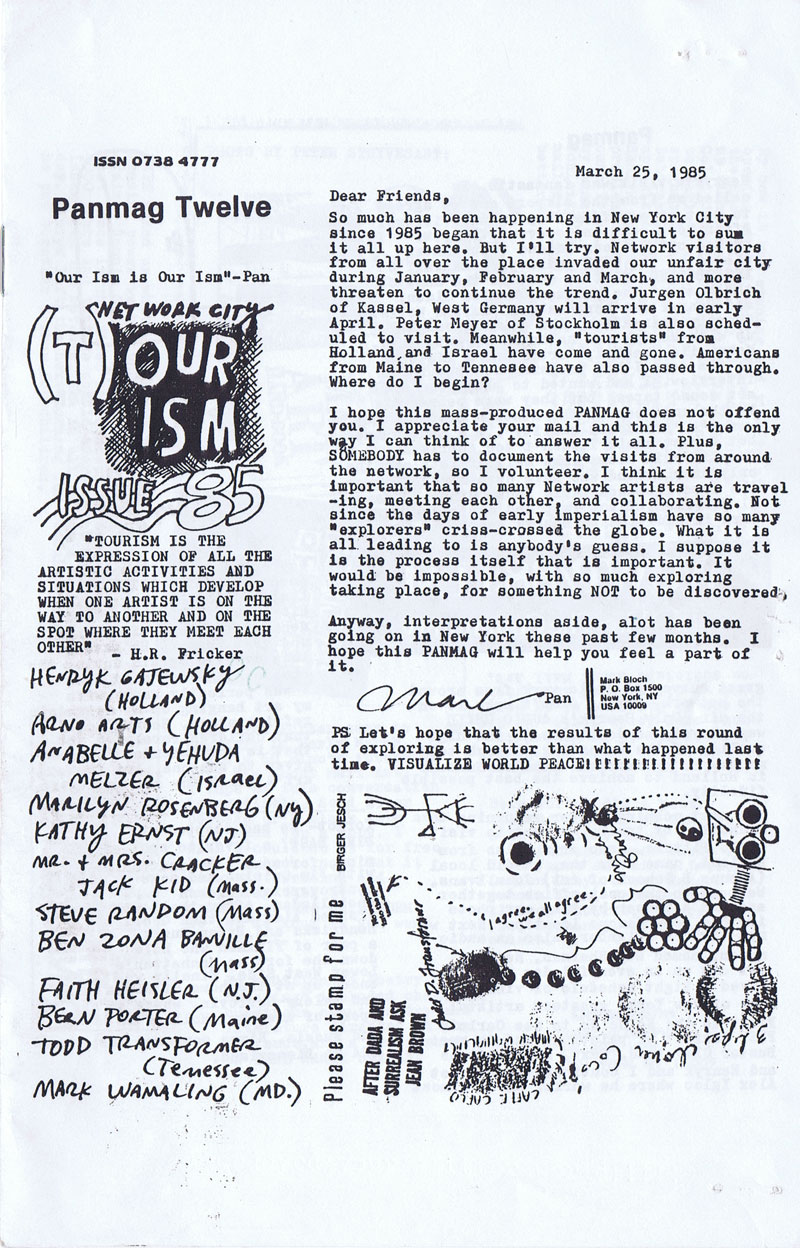 ISSN 0738 4777
Panmag Twelve
"Our Ism is Our Ism"-Pan
NETWORK CITY
(T)OUR
ISM
ISSUE 85
"TOURISM IS THE
EXPRESSION OF ALL THE
ARTISTIC ACTIVITIES AND
SITUATIONS WHICH DEVELOP
WHEN ONE ARTIST IS ON THE
WAY TO ANOTHER AND ON THE
SPOT WHERE THEY MEET EACH
OTHER"
- H.R. Fricker
HENRYK GAJEWSKY
(HOLLAND)
ARNO ARTS (HOLLAND)
ANABELLE + YEHUDA
MELZER (ISrael)
MARILYN ROSENBERG (NY)
KATHY ERNST (NJ)
MR. + MRS. CRACKER
JACK KID (Mass.)
STEVE RANDOM (Mass)
BEN ZONA BANVILLE
(Mass)
FAITH HEISLER (N.J.)
BERN PORTER (Maine)
TODD TRANSFORMER
(Tenessee)
MARK WAMALING (MD.)
March 25, 1985
Dear Friends,
So much has been happening in New York City
since 1985 began that it is difficult to sum
it all up here. But I'll try. Network visitors
from all over the place invaded our unfair city
during January, February and March, and more
threaten to continue the trend. Jurgen Olbrich
of Kassel, West Germany will arrive in early
April. Peter Meyer of Stockholm is also sched-
uled to visit. Meanwhile, "tourists" from
Holland, and Israel have come and gone. Americans
from Maine to Tennesee have also passed through.
Where do I begin?
I hope this mass-produced PANMAG does not offend
you. I appreciate your mail and this is the only
way I can think of to answer it all. Plus,
SOMEBODY has to document the visits from around
the network, so I volunteer. I think it is
important that so many Network artists are travel
-ing, meeting each other, and collaborating. Not
since the days of early imperialism have so many
"explorers" criss-crossed the globe. What it is
all leading to is anybody's guess. I suppose it
is the process itself that is important. It
would be impossible, with so much exploring
taking place, for something NOT to be discovered,
Anyway, interpretations aside, alot has been
going on in New York these past few months. I
hope this PANMAG will help you feel a part of
it.
Mark Pan
Mark Bloch
P. O. Box 1500
New York, NY
USA 10009
PS Let's hope that the results of this round
of exploring is better than what happened last
time. VISUALIZE WORLD PEACE!!!!!!!!!!!!!!!!!!
BIRGER JESCH
Please stamp for me
AFTER DADA AND
SURREALISM ASK
JEAN BROWN
I agree we all agree